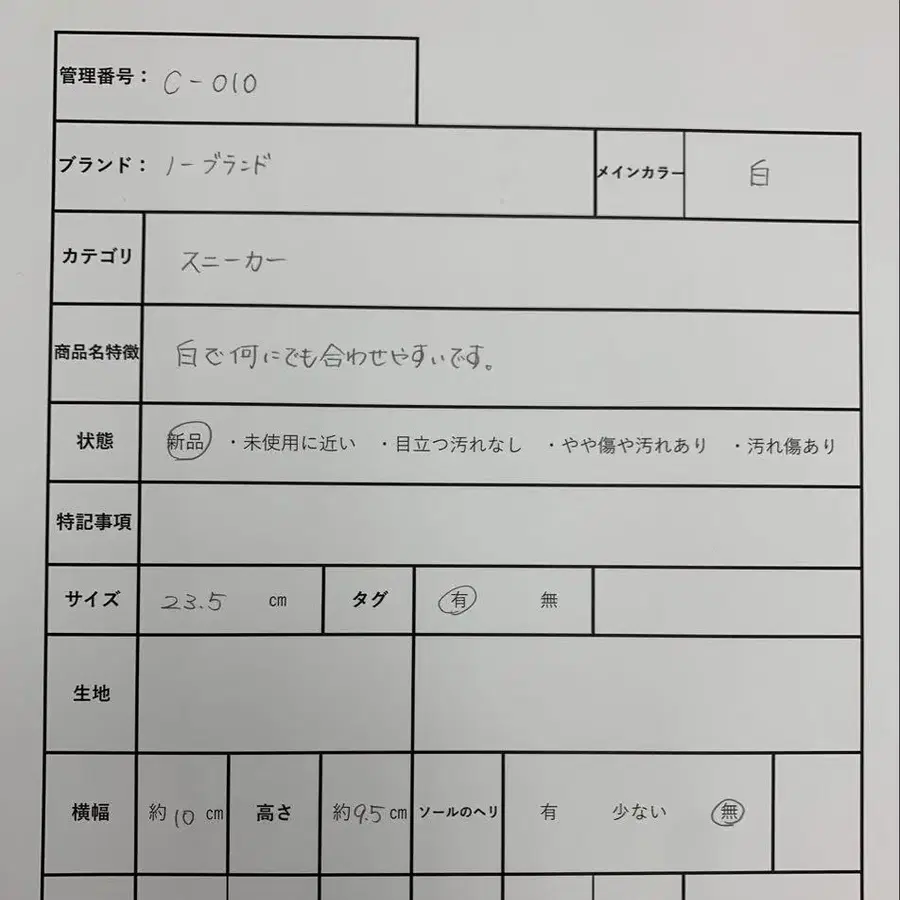 管理番号： C-010
ブランド： ノーブランド メインカラー 白
カテゴリ スニーカー
商品名特徴 白で何にでも合わせやすいです。
状態 新品 ・未使用に近い ・目立つ汚れなし ・やや傷や汚れあり ・汚れ傷あり
特記事項
サイズ 23.5 cm タグ 有 無
生地
横幅 約10 cm 高さ 約9.5cm ソールのヘリ 有 少ない 無